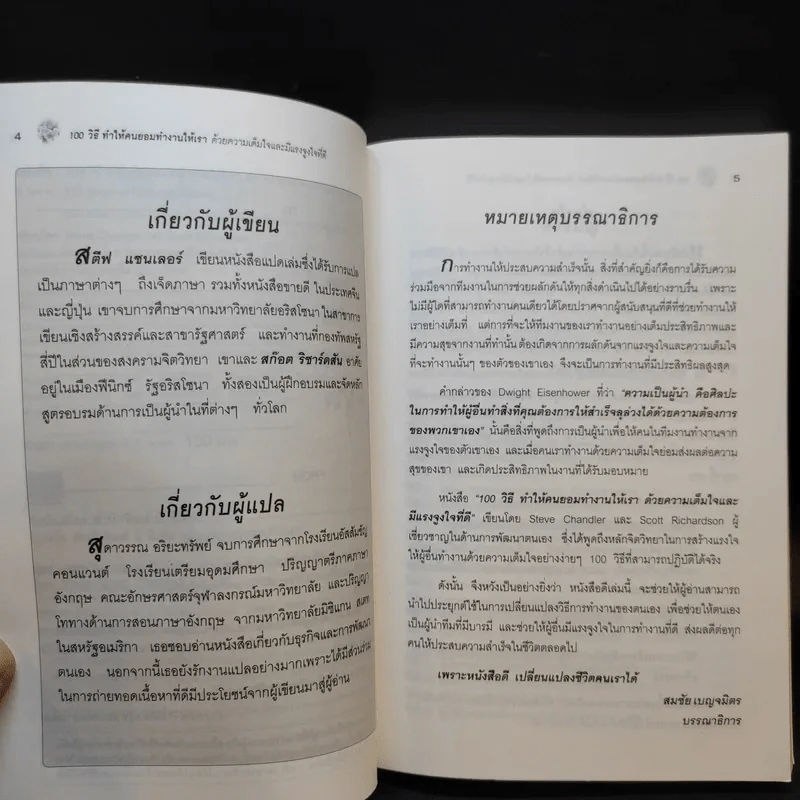 4
100 วิธี ทำให้คนยอมทำงานให้เรา ด้วยความเต็มใจและมีแรงจูงใจที่ดี
เกี่ยวกับผู้เขียน
สตีฟ แชนเลอร์ เขียนหนังสือแปดเล่มซึ่งได้รับการแปล
เป็นภาษาต่างๆ ถึงเจ็ดภาษา รวมทั้งหนังสือขายดี ในประเทศจีน
และญี่ปุ่น เขาจบการศึกษาจากมหาวิทยาลัยอริสโซนา ในสาขาการ
เขียนเชิงสร้างสรรค์และสาขารัฐศาสตร์ และทำงานที่กองทัพสหรัฐ
สี่ปีในส่วนของสงครามจิตวิทยา เขาและ สก๊อต ริชาร์ดสัน อาศัย
อยู่ในเมืองฟีนิกซ์ รัฐอริสโซนา ทั้งสองเป็นผู้ฝึกอบรมและจัดหลัก
สูตรอบรมด้านการเป็นผู้นำในที่ต่างๆ ทั่วโลก
เกี่ยวกับผู้แปล
สุดาวรรณ อริยะทรัพย์ จบการศึกษาจากโรงเรียนอัสสัมชัญ
คอนแวนต์ โรงเรียนเตรียมอุดมศึกษา ปริญญาตรีภาคภาษา
อังกฤษ คณะอักษรศาสตร์จุฬาลงกรณ์มหาวิทยาลัย และปริญญา
โททางด้านการสอนภาษาอังกฤษ จากมหาวิทยาลัยมิชิแกน สเตท
ในสหรัฐอเมริกา เธอชอบอ่านหนังสือเกี่ยวกับธุรกิจและการพัฒนา
ตนเอง นอกจากนี้เธอยังรักงานแปลอย่างมากเพราะได้มีส่วนร่วม
ในการถ่ายทอดเนื้อหาที่ดีมีประโยชน์จากผู้เขียนมาสู่ผู้อ่าน
5
หมายเหตุบรรณาธิการ
การทำงานให้ประสบความสำเร็จนั้น สิ่งที่สำคัญยิ่งก็คือการได้รับความ
ร่วมมือจากทีมงานในการช่วยผลักดันให้ทุกสิ่งดำเนินไปได้อย่างราบรื่น เพราะ
ไม่มีผู้ใดที่สามารถทำงานคนเดียวได้โดยปราศจากผู้สนับสนุนที่ดีที่ช่วยทำงานให้
เราอย่างเต็มที่ แต่การที่จะให้ทีมงานของเราทำงานอย่างเต็มประสิทธิภาพและ
มีความสุขจากงานที่ทำนั้น ต้องเกิดจากการผลักดันจากแรงจูงใจและความเต็มใจ
ที่จะทำงานนั้นๆ ของตัวของเขาเอง จึงจะเป็นการทำงานที่มีประสิทธิผลสูงสุด
คำกล่าวของ Dwight Eisenhower ที่ว่า "ความเป็นผู้นำ คือศิลปะ
ในการทำให้ผู้อื่นทำสิ่งที่คุณต้องการให้สำเร็จลุล่วงได้ด้วยความต้องการ
ของพวกเขาเอง" นั้นคือสิ่งที่พูดถึงการเป็นผู้นำเพื่อให้คนในทีมงานทำงานจาก
แรงจูงใจของตัวเขาเอง และเมื่อคนเราทำงานด้วยความเต็มใจย่อมส่งผลต่อความ
สุขของเขา และเกิดประสิทธิภาพในงานที่ได้รับมอบหมาย
หนังสือ "100 วิธี ทำให้คนยอมทำงานให้เรา ด้วยความเต็มใจและ
มีแรงจูงใจที่ดี" เขียนโดย Steve Chandler และ Scott Richardson ผู้
เชี่ยวชาญในด้านการพัฒนาตนเอง ซึ่งได้พูดถึงหลักจิตวิทยาในการสร้างแรงใจ
ให้ผู้อื่นทำงานด้วยความเต็มใจอย่างง่ายๆ 100 วิธีที่สามารถปฏิบัติได้จริง
ดังนั้น จึงหวังเป็นอย่างยิ่งว่า หนังสือดีเล่มนี้ จะช่วยให้ผู้อ่านสามารถ
นำไปประยุกต์ใช้ในการเปลี่ยนแปลงวิธีการทำงานของตนเอง เพื่อช่วยให้ตนเอง
เป็นผู้นำทีมที่มีบารมี และช่วยให้ผู้อื่นมีแรงจูงใจในการทำงานที่ดี ส่งผลดีต่อทุก
คนให้ประสบความสำเร็จในชีวิตตลอดไป
เพราะหนังสือดี เปลี่ยนแปลงชีวิตคนเราได้
สมชัย เบญจมิตร
บรรณาธิการ